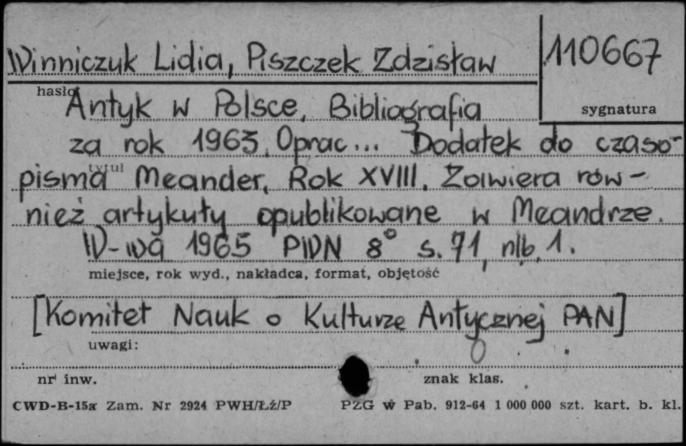 Winniczuk Lidia, Piszczek Zdzisław
110667
hasło
sygnatura
Antyk w Polsce. Bibliografia
za rok 1963. Oprac... Dodatek do czaso-
pisma Meander, Rok XVIII. Zawiera rów-
tytuł
nież artykuły opublikowane w Meandrze.
W-wa 1965 PWN 8° s. 71, nlb. 1.
miejsce, rok wyd., nakładca, format, objętość
[Komitet Nauk o Kulturze Antycznej PAN]
uwagi:
nr inw.
znak klas.
CWD-B-15a Zam. Nr 2924 PWH/Łź/P
PZG w Pab. 912-64 1 000 000 szt. kart. b. kl.